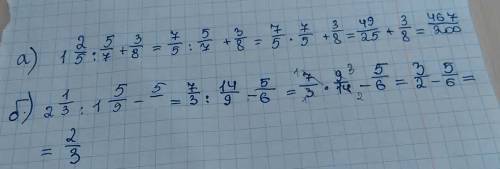 а) 1 2/5 : 5/7 + 3/8 = 7/5 : 5/7 + 3/8 = 7/5 · 7/5 + 3/8 = 49/25 + 3/8 = 467/200
б) 2 1/3 : 1 5/9 - 5/ = 7/3 : 14/9 - 5/6 = 1 7/3 1 · 9 3/14 2 - 5/6 = 3/2 - 5/6 =
= 2/3